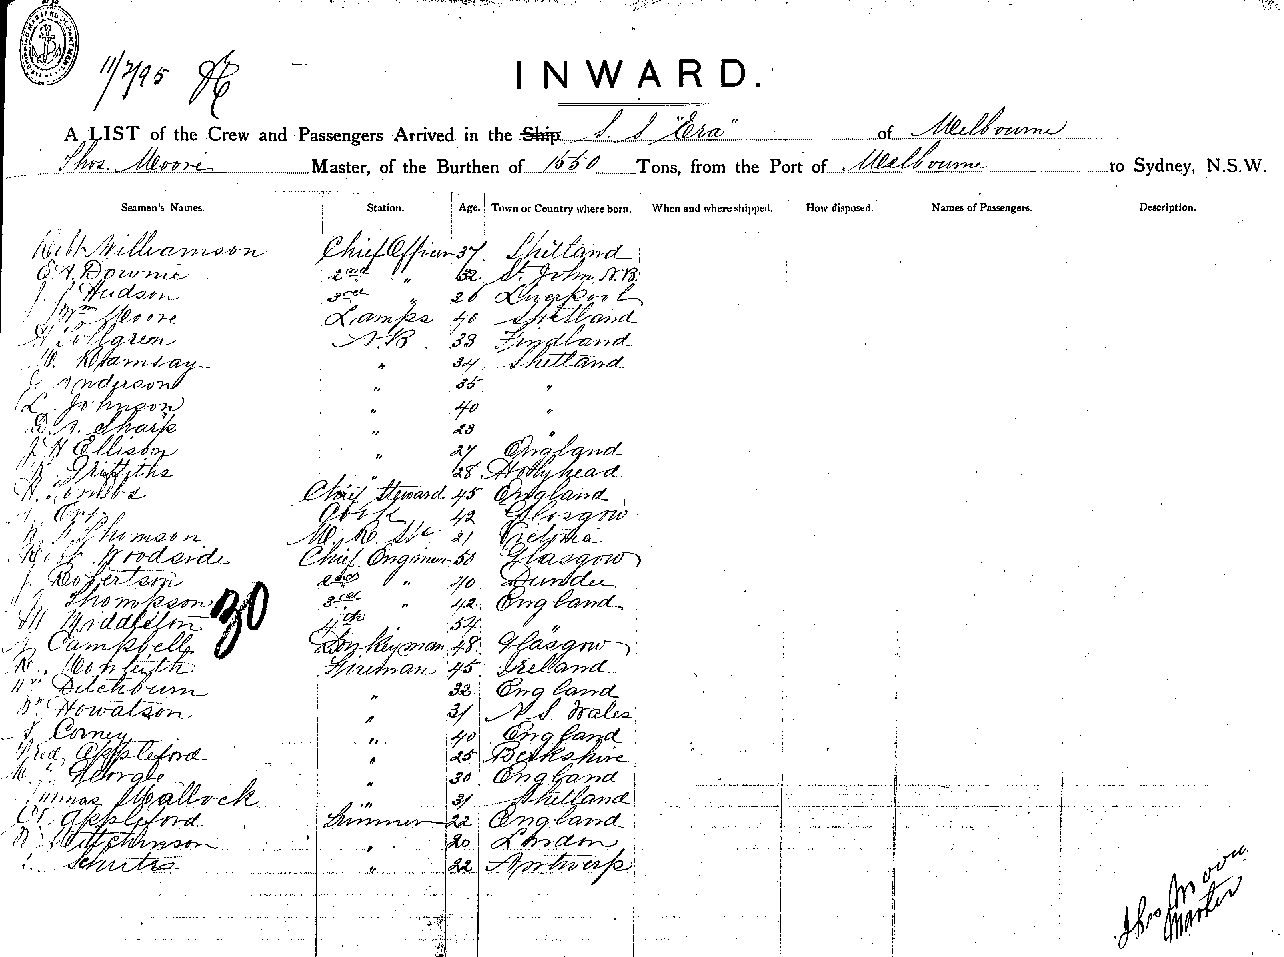 11/7/95
INWARD.
A LIST of the Crew and Passengers Arrived in the Ship S. S "Era" of Melbourne
Thos. Moore Master, of the Burthen of 1550 Tons, from the Port of Melbourne to Sydney, N.S.W.
Seamen's Names. Station. Age. Town or Country where born. When and where shipped. How disposed. Names of Passengers. Description.
Williamson Chief Officer 37 Shetland
Downie 2nd " 32 St. John N.B.
J. J Hudson 3rd " 26 Liverpool
Wm Moore Lamps 40 Shetland
Tollgren A.B. 33 Findland
Ramsay " 34 Shetland
Anderson " 35 "
L. Johnson " 40 "
Sharp " 23 "
J. H Ellison " 27 England
Griffiths " 28 Hollyhead
Combs Chief Steward 45 England
Cook 42 Glasgow
Thomson 21
Woodside Chief Engineer 50 Glasgow
J. Robertson 2nd " 40 Dundee
Thompson 3rd " 42 England
M Middleton 4th 54
30
Campbell Donkeyman 48 Glasgow
Monteith Fireman 45 Ireland
Ditchburn " 32 England
Howatson " 31 N. S. Wales
Corney " 40 England
Fred Appleford " 25 Berkshire
George " 30 England
Thomas Mallock " 31 Shetland
Appleford Trimmer 22 England
Hutchinson " 20 London
Schultz " 22 Antwerp
Thos Moore
Master